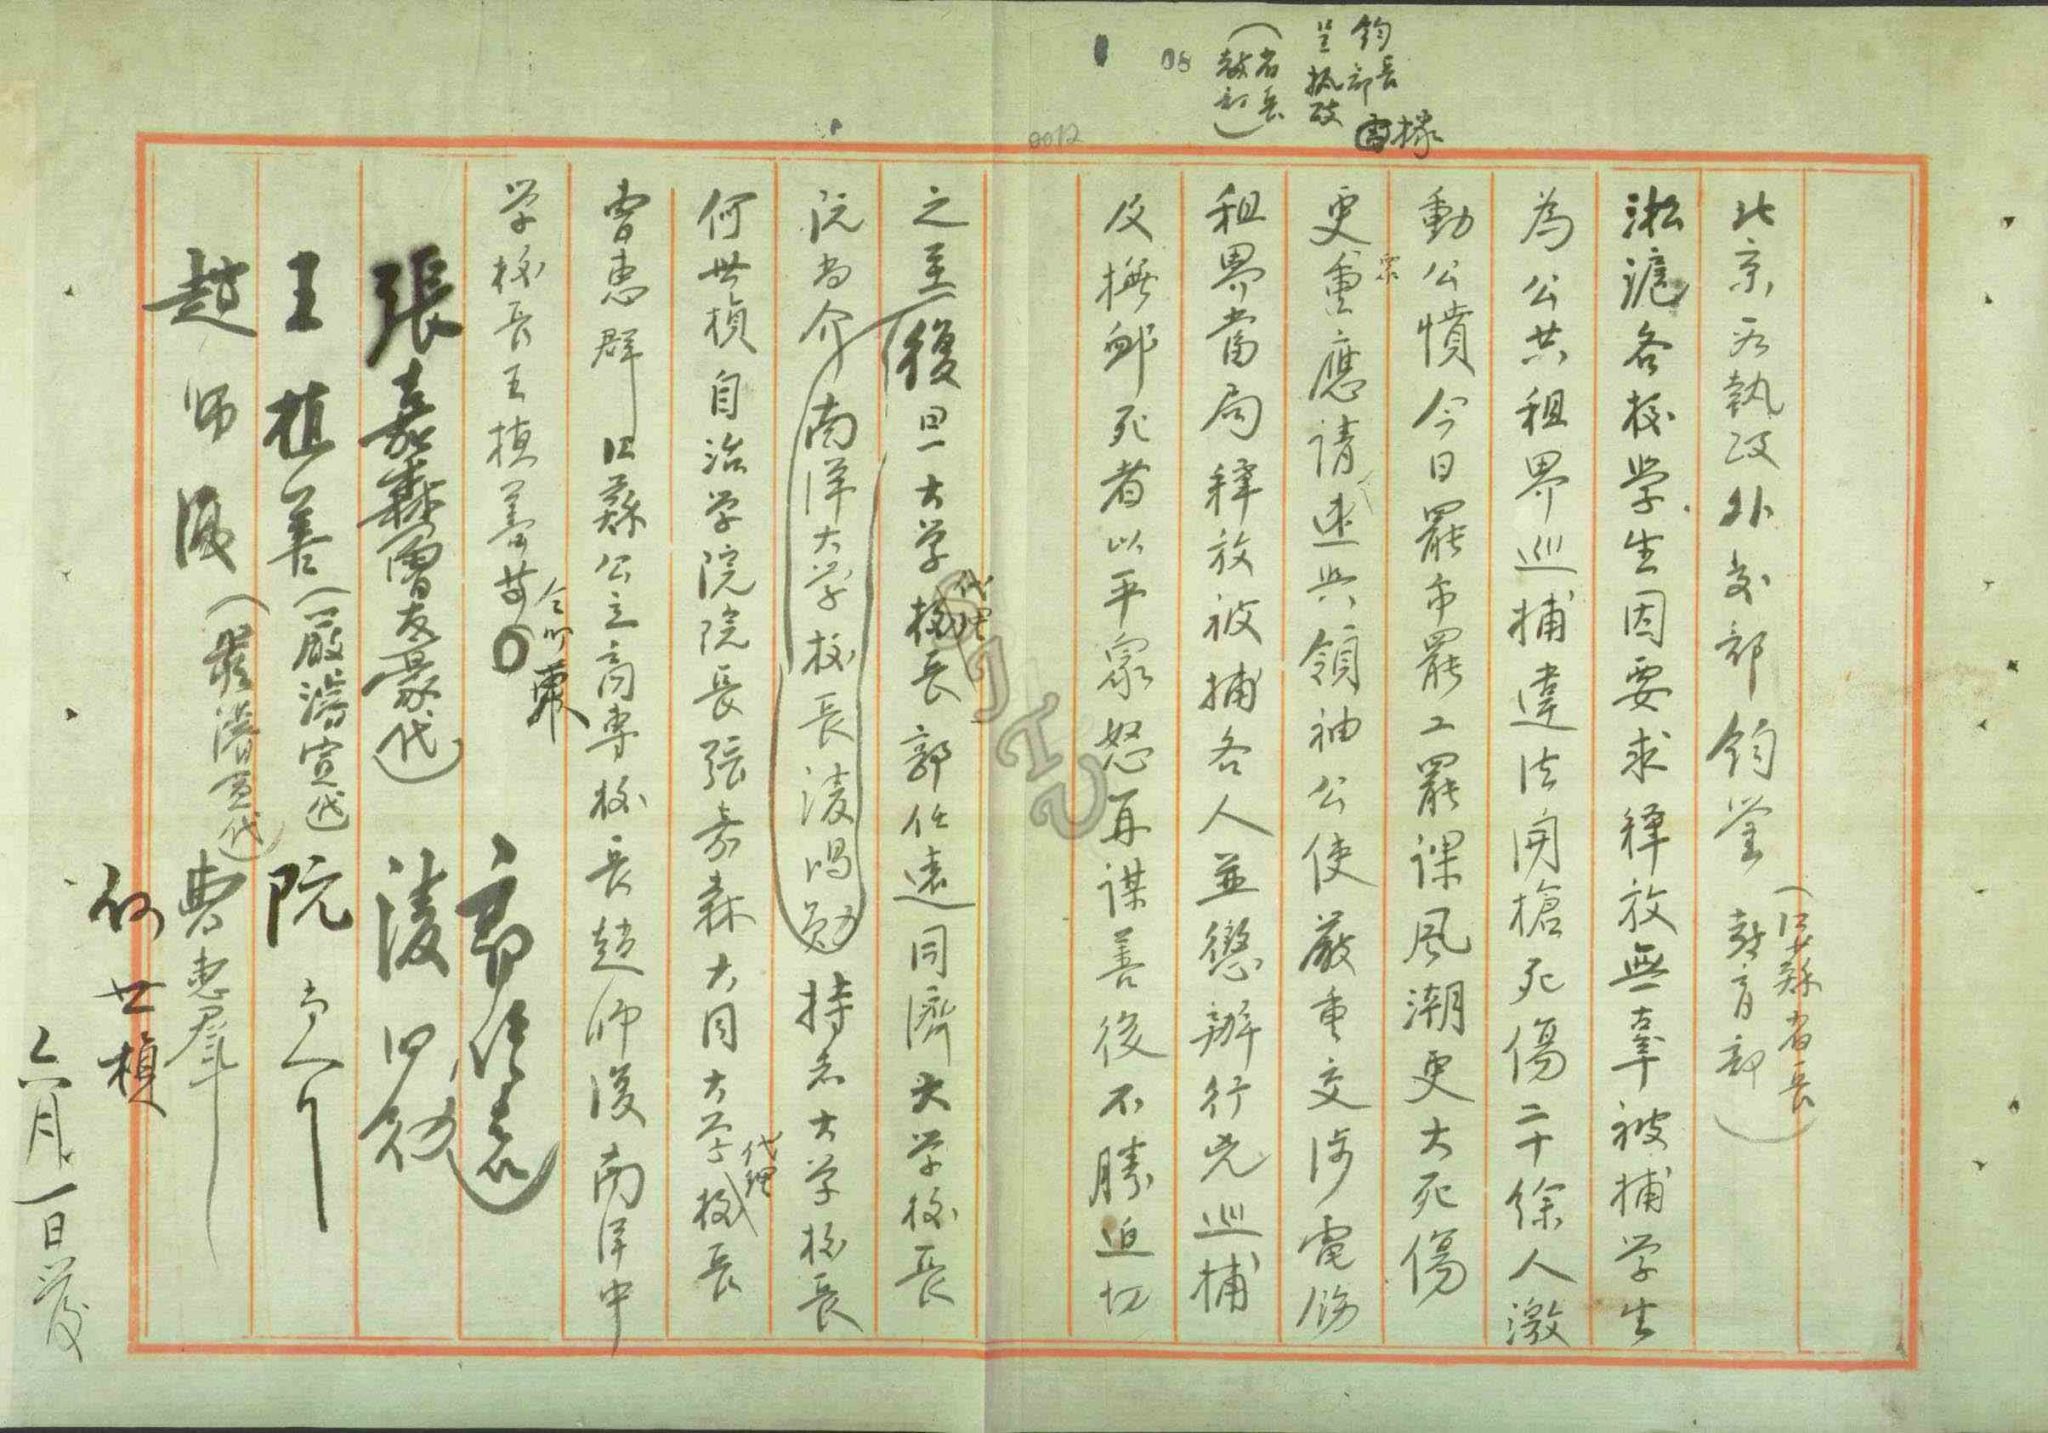 鈞長
呈執政
部
(省長
教部)
08
0012
北京段執政外交部鈞鑒
(江蘇省長
教育部)
淞滬各校学生因要求释放無辜被捕学生
為公共租界巡捕違法開槍死傷二十餘人激
動公憤今日罷市罷工罷課風潮更大死傷
更重應請迅與領袖公使嚴重交涉電飭
租界當局释放被捕各人並懲辦行兇巡捕
及撫卹死者以平眾怒再謀善後不勝迫切
之至復旦大学代理校長郭任遠同濟大学校長
阮尚介南洋大学校長凌鴻勛持志大学校長
何世楨自治学院院長張嘉森大同大学代理校長
曹惠群江蘇公立商專校長趙師復南洋中
学校長王植善等仝叩東
郭任遠
張嘉森(曹友豪代) 凌鴻勛
王植善(嚴濬宣代) 阮尚介
趙師復(嚴濬宣代) 曹惠羣
何世楨
六月一日發
SJTU